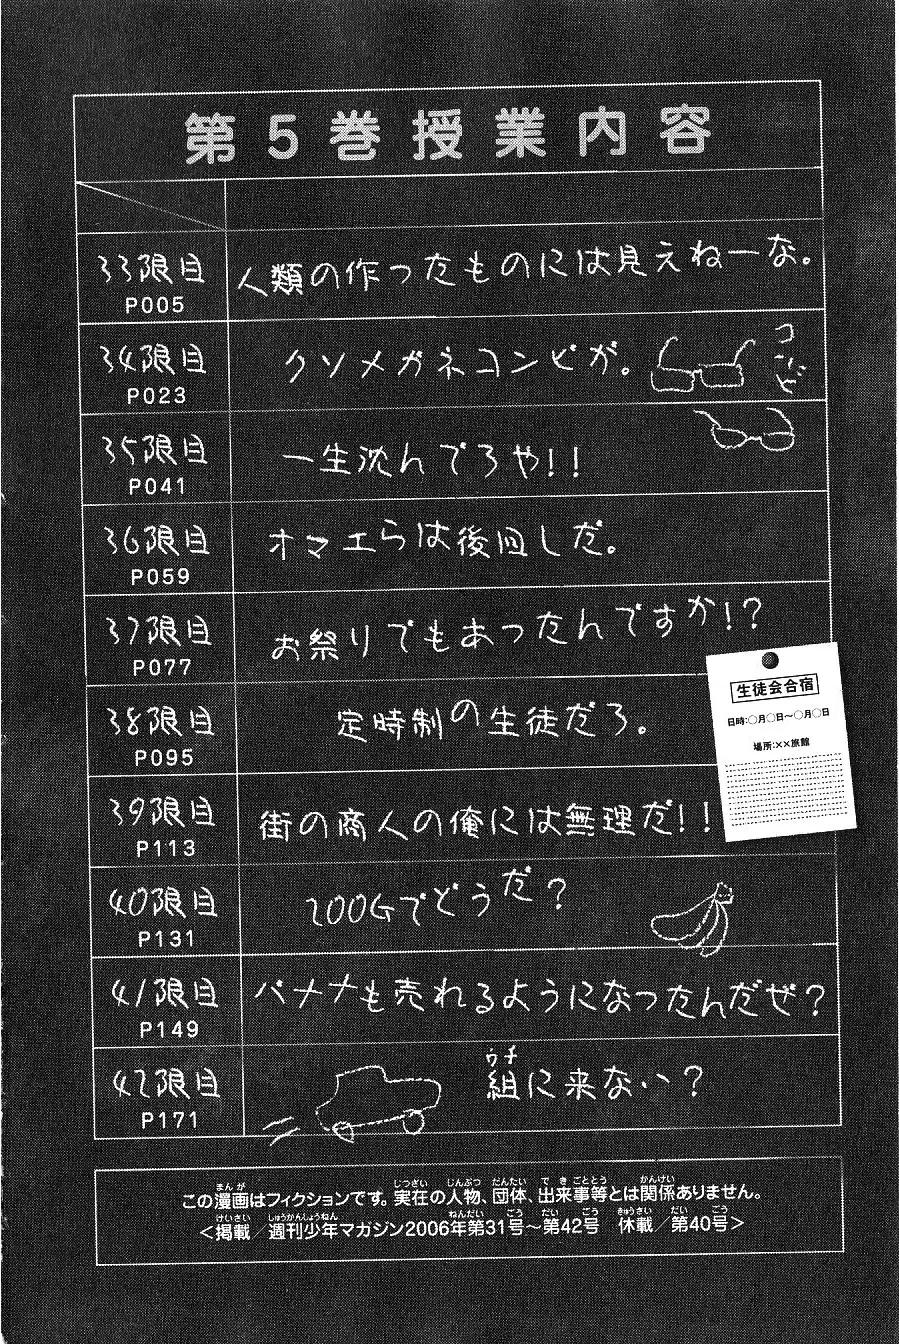 第5巻授業内容
33限目 人類の作ったものには見えねーな。
P005
34限目 クソメガネコンビが。 コンビ
P023
35限目 一生沈んでろや!!
P041
36限目 オマエらは後回しだ。
P059
37限目 お祭りでもあったんですか!?
P077
38限目 定時制の生徒だろ。
P095
39限目 街の商人の俺には無理だ!!
P113
40限目 200Gでどうだ?
P131
41限目 バナナも売れるようになったんだぜ?
P149
42限目 組に来ない?
ウチ
P171
生徒会合宿
日時:○月○日〜○月○日
場所:××旅館
この漫画はフィクションです。実在の人物、団体、出来事等とは関係ありません。
<掲載/週刊少年マガジン2006年第31号〜第42号 休載/第40号>